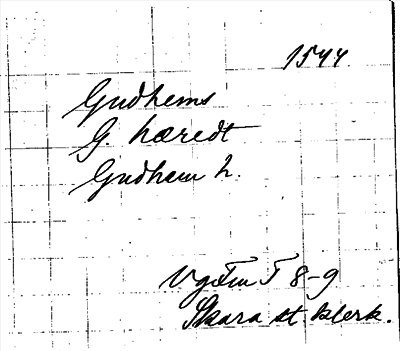 1544
Gudhems
G. hæredt
Gudhem h.
VgFmT 8-9
Skara st. klerk.